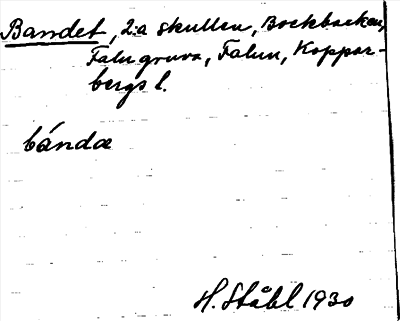 Bandet, 2:a skullen, Bockbacken,
Falu gruva, Falun, Koppar-
bergs l.
bándæ
H. Ståhl 1930